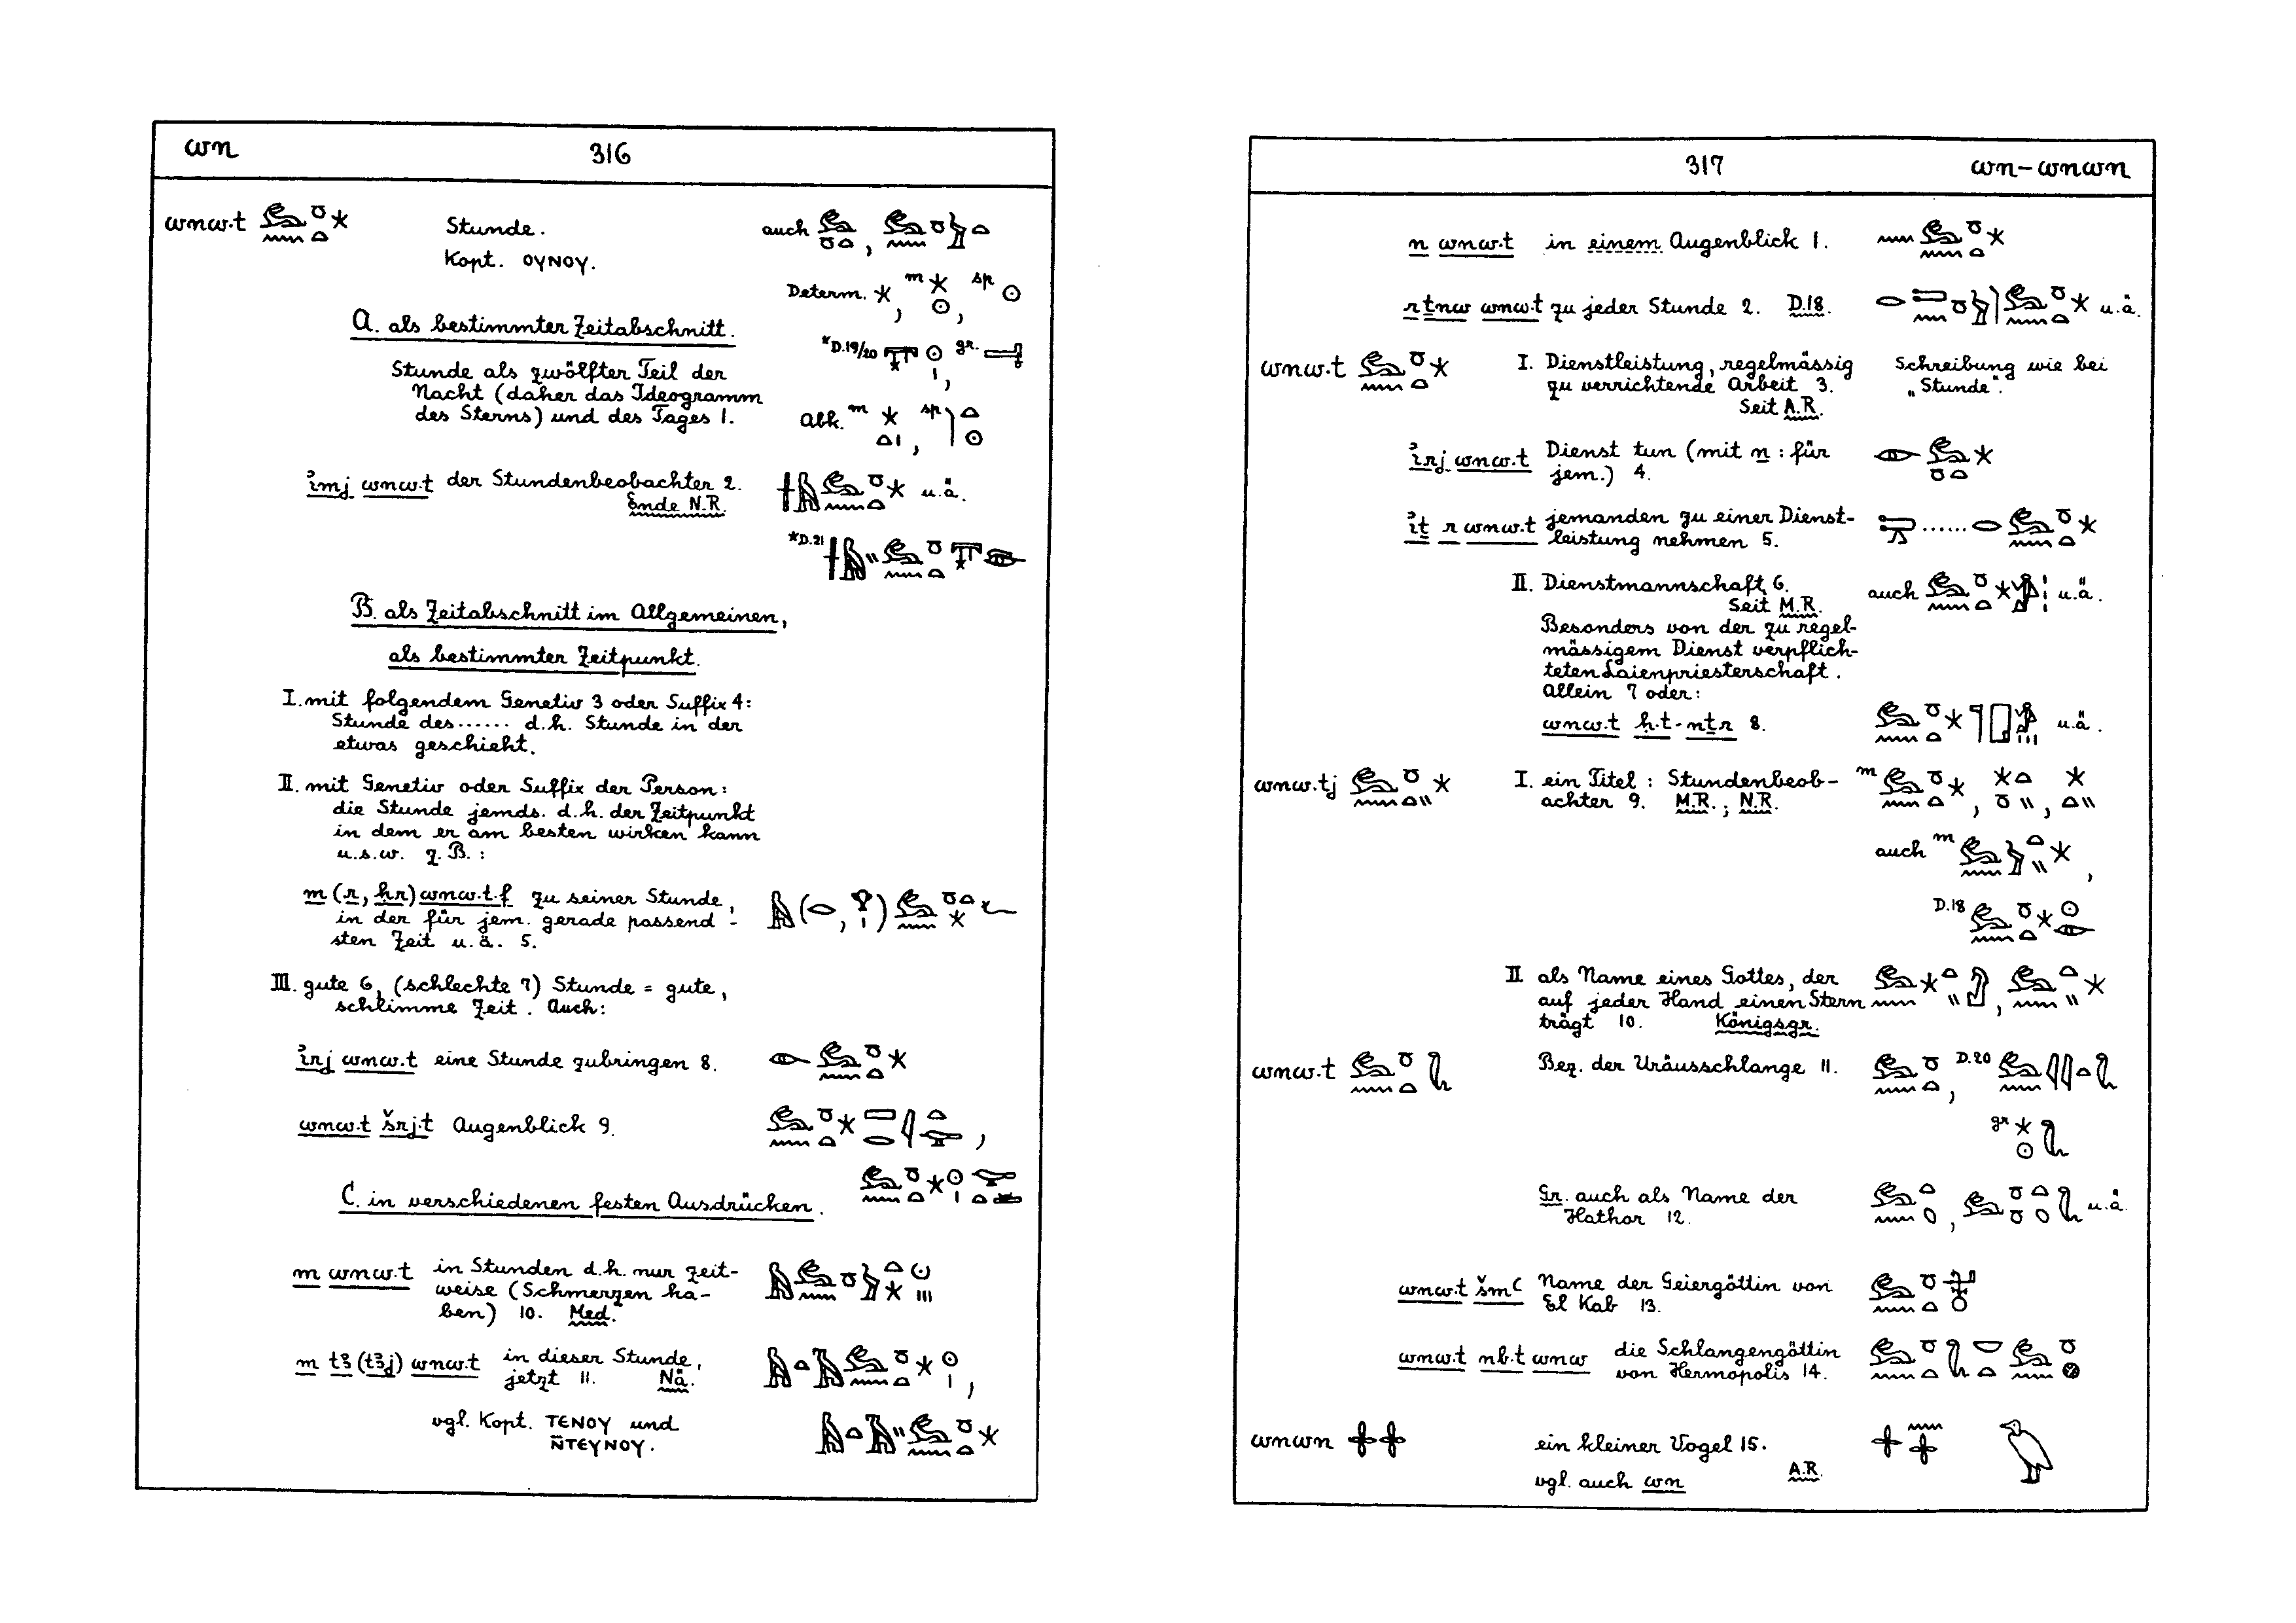 wn 316
wnw.t Stunde. auch
Kopt. ⲟⲩⲛⲟⲩ.
Determ. , m , sp
A. als bestimmter Zeitabschnitt.
*D.19/20 , gr.
Stunde als zwölfter Teil der
Nacht (daher das Ideogramm
des Sterns) und des Tages 1.
Abk. m , sp
i̓mj wnw.t der Stundenbeobachter 2. u.ä.
Ende N.R.
*D.21
B. als Zeitabschnitt im Allgemeinen,
als bestimmter Zeitpunkt.
I. mit folgendem Genetiv 3 oder Suffix 4:
Stunde des ...... d.h. Stunde in der
etwas geschieht.
II. mit Genetiv oder Suffix der Person:
die Stunde jemds. d.h. der Zeitpunkt
in dem er am besten wirken kann
u.s.w. z.B.:
m (r, ḥr) wnw.t.f zu seiner Stunde,
in der für jem. gerade passend-
sten Zeit u.ä. 5.
III. gute 6, (schlechte 7) Stunde = gute,
schlimme Zeit. Auch:
i̓rj wnw.t eine Stunde zubringen 8.
wnw.t šrj.t Augenblick 9.
C. in verschiedenen festen Ausdrücken.
m wnw.t in Stunden d.h. nur zeit-
weise (Schmerzen ha-
ben) 10. Med.
m tꜣ (tꜣj) wnw.t in dieser Stunde,
jetzt 11. Nä.
vgl. Kopt. ⲧⲉⲛⲟⲩ und
ⲛ̄ⲧⲉⲩⲛⲟⲩ.
317 wn – wnwn
n wnw.t in einem Augenblick 1.
r ṯnw wnw.t zu jeder Stunde 2. D.18. u.ä.
wnw.t I. Dienstleistung, regelmässig Schreibung wie bei
zu verrichtende Arbeit 3. „Stunde".
Seit A.R.
i̓rj wnw.t Dienst tun (mit n: für
jem.) 4.
i̓ṯ r wnw.t jemanden zu einer Dienst-
leistung nehmen 5.
II. Dienstmannschaft 6. auch u.ä.
Seit M.R.
Besonders von der zu regel-
mässigem Dienst verpflich-
teten Laienpriesterschaft.
Allein 7 oder:
wnw.t ḥ.t-nṯr 8. u.ä.
wnw.tj I. ein Titel: Stundenbeob- m
achter 9. M.R.; N.R.
auch m ,
D.18
II als Name eines Gottes, der
auf jeder Hand einen Stern
trägt 10. Königsgr.
wnw.t Bez. der Uräusschlange 11. , D.20
gr
Gr. auch als Name der u.ä.
Hathor 12.
wnw.t šmꜥ Name der Geiergöttin von
El Kab 13.
wnw.t nb.t wnw die Schlangengöttin
von Hermopolis 14.
wnwn ein kleiner Vogel 15.
vgl. auch wn A.R.